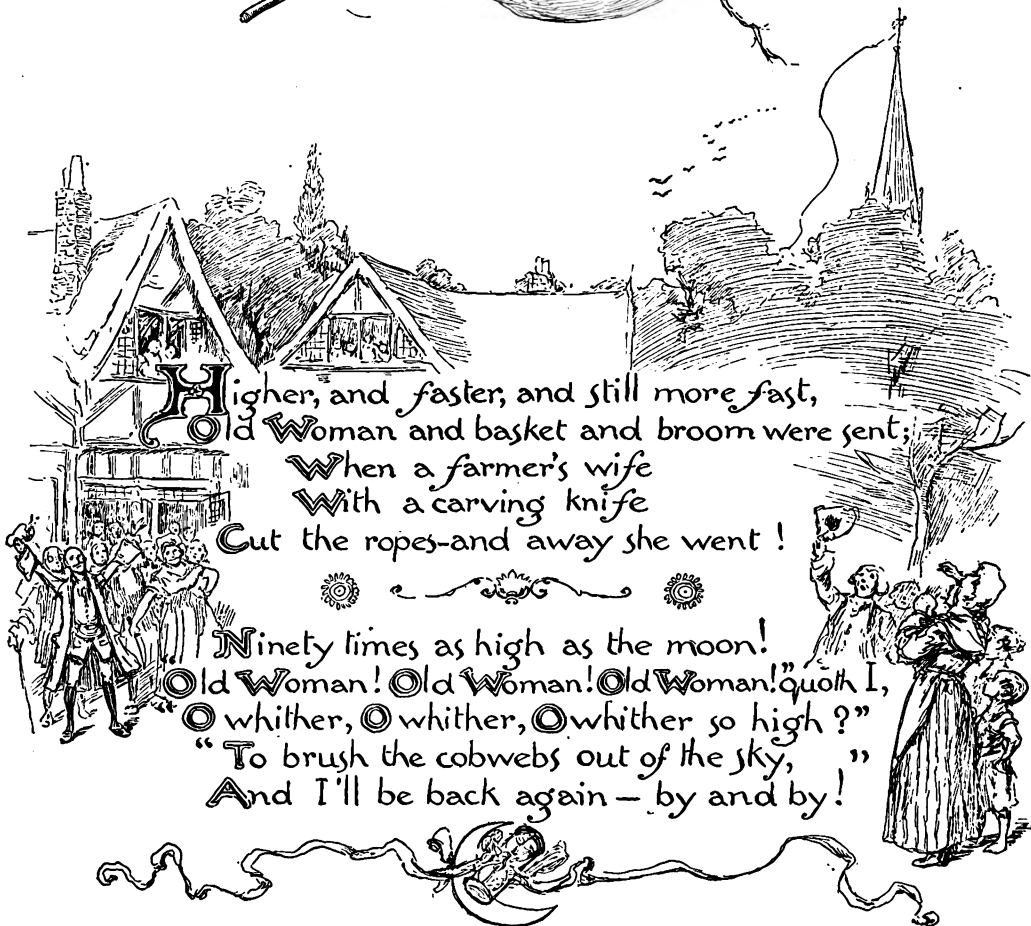 Higher, and faster, and still more fast,
Old Woman and basket and broom were sent;
When a farmer's wife
With a carving knife
Cut the ropes-and away she went !
Ninety times as high as the moon!
"Old Woman! Old Woman! Old Woman!" quoth I,
"O whither, O whither, O whither so high ?"
"To brush the cobwebs out of the sky, "
And I'll be back again – by and by!